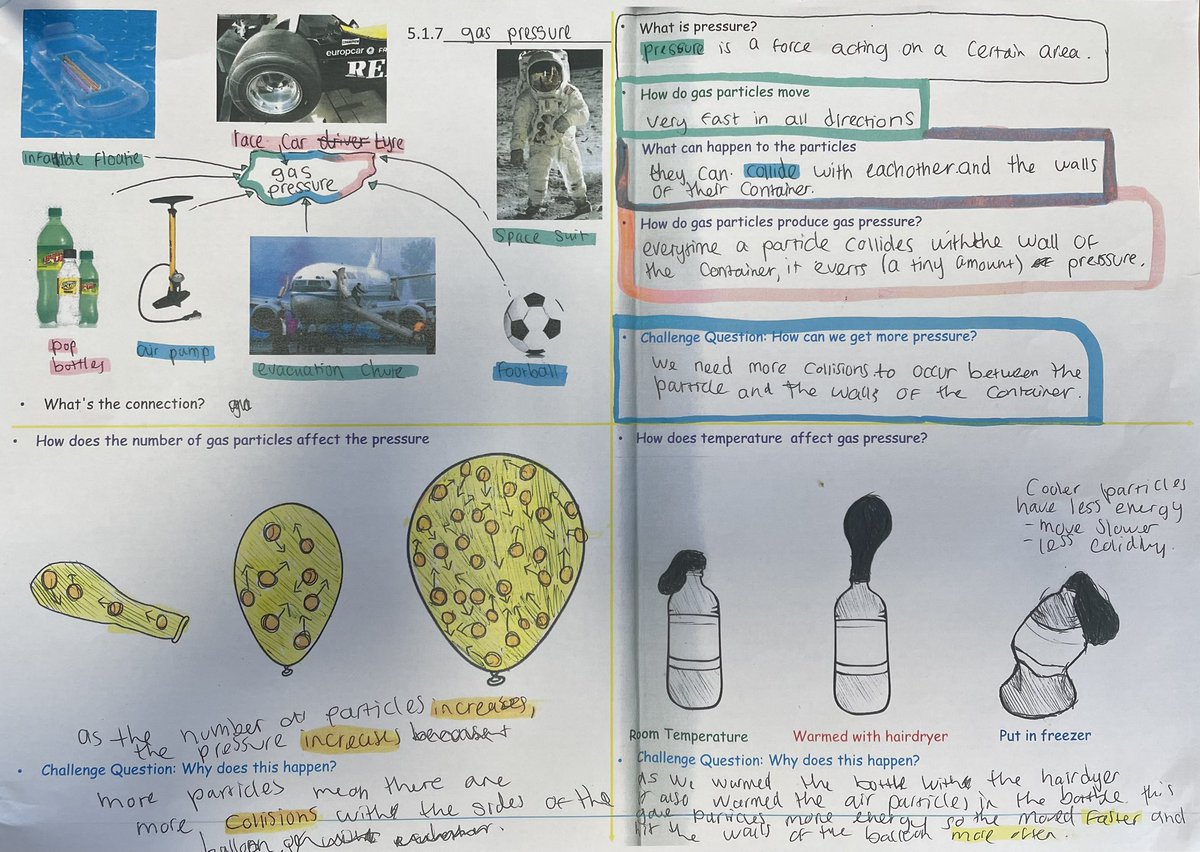 5.1.7 gas pressure
europcar
RE
race car driver tyre
inflatible floatie
gas
pressure
Space Suit
pop
bottles
air pump
evacuation chute
football
• What's the connection?
• What is pressure?
pressure is a force acting on a certain area.
• How do gas particles move
very fast in all directions
What can happen to the particles
they can collide with eachother and the walls
of their container.
• How do gas particles produce gas pressure?
everytime a particle collides with the wall of
the container, it exerts (a tiny amount) of pressure.
• Challenge Question: How can we get more pressure?
We need more collisions to occur between the
particle and the walls of the container.
• How does the number of gas particles affect the pressure
as the number of particles increases,
the pressure increases because
• Challenge Question: Why does this happen?
more particles mean there are
more collisions with the sides of the
balloon
• How does temperature affect gas pressure?
Cooler particles
have less energy
- move slower
- less
Room Temperature
Warmed with hairdryer
Put in freezer
• Challenge Question: Why does this happen?
As we warmed the bottle with the hairdyer
it also warmed the air particles in the bottle. this
gave particles more energy so the moved faster and
hit the walls of the balloon more often.